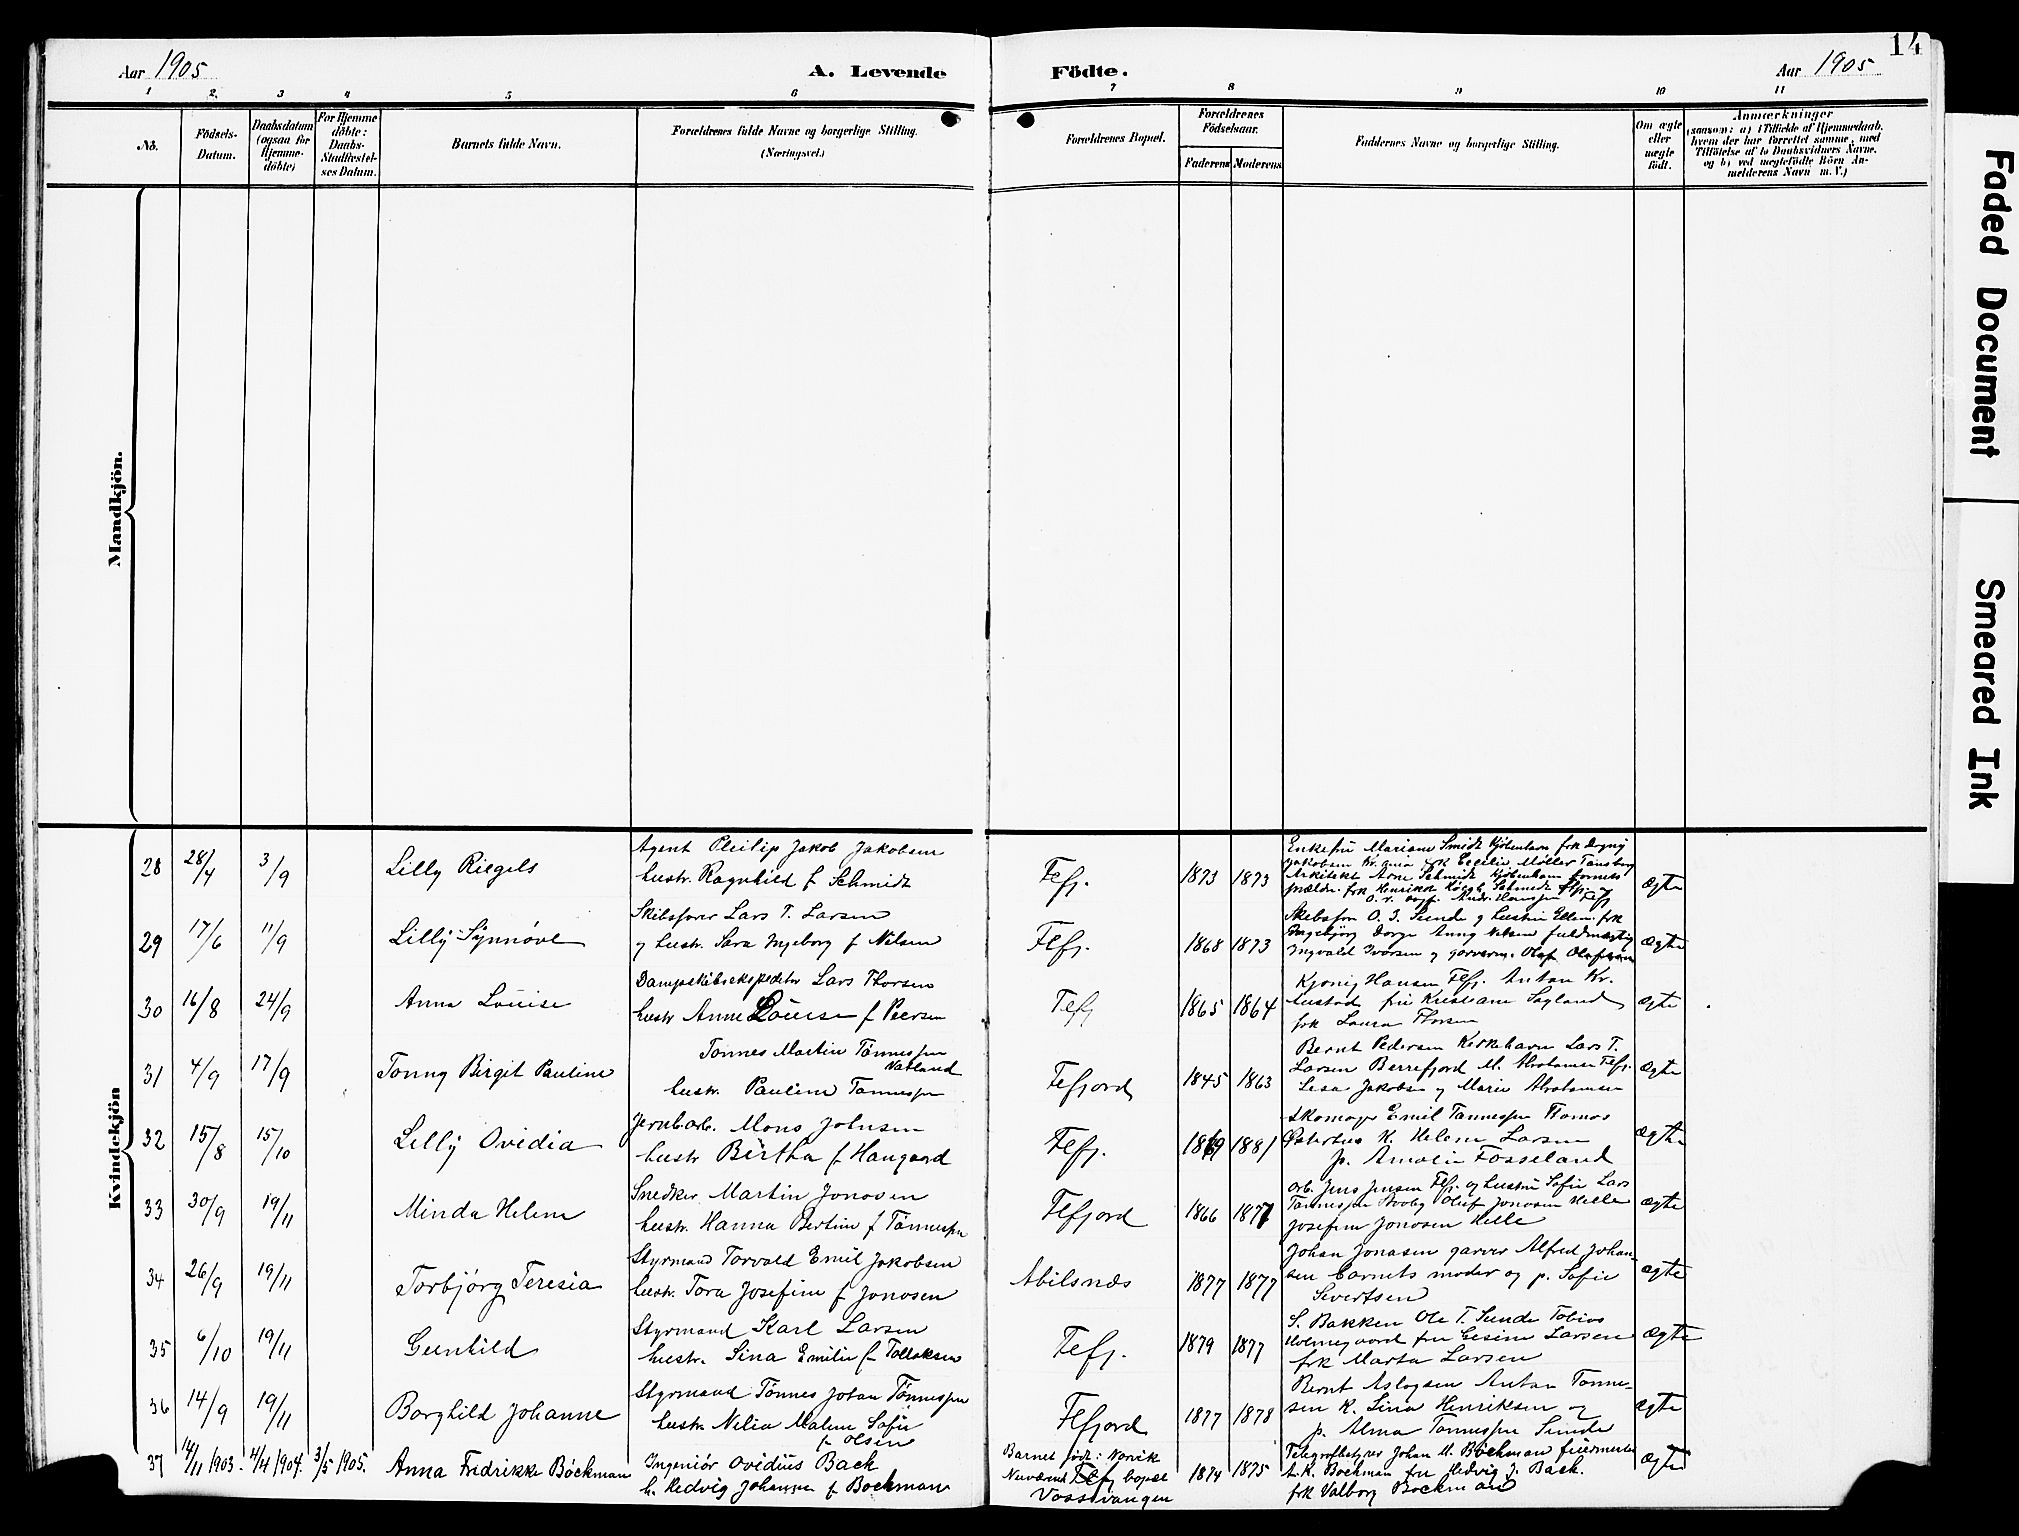 Aar 1905
A. Levende Födte.
Aar 1905
14
1 2. 3 4 5 6 7 8 9 10 11
No.
Födsels-Datum.
Daabsdatum (ogsaa for Hjemmedöbte)
For Hjemmedöbte: Daabs-Stadfestelses Datum.
Barnets fulde Navn.
Forældrenes fulde Navne og borgerlige Stilling.
(Næringsvei.)
Forældrenes Bopæl.
Forældrenes Födselsaar.
Faderens Moderens
Faddernes Navne og borgerlige Stilling.
Om ægte eller uægte födt.
Anmærkninger
(saasom: a) i Tilfælde af Hjemmedaab, hvem der har forrettet samme, med Tilföielse af to Daabsvidners Navne, og b) ved uægtefödte Börn Anmelderens Navn m. V.)
Mandkjön.
Kvindekjön
28 28/4 3/9 Lilly Riegels
Agent Philip Jakob Jakobsen
hustr. Ragnhild f Schmidt
Flfj. 1873 1873
Enkefru Mariane Smidt Kjöbenhavn frk Dagny
Jakobsen Kr.ania frk Cecilie Møller Tønsberg
Arkitekt Arne Schmidt Kjöbenhavn barnets
ægte
29 17/6 11/9 Lilly Synnöve
Skibsfører Lars T. Larsen
og hustr. Sara Ingeborg f Nilsen
Flfj. 1868 1873
Skibsfør O. J. Sunde og hustru Ellen. frk
Ingvald Iversen og garverm. Oluf Olufsen
ægte
30 16/8 24/9 Anna Louise
Dampskibsekspeditør Lars Thorsen
hustr Anne Louise f Peersen
Flfj 1865 1864
Kjönig Hansen Flfj. Anton Kr.
fru Kristiane Sagland
frk Laura Thorsen
ægte
31 4/9 17/9 Tonny Birgit Pauline
Tonnes Martin Tönnessen
Natland
hustr. Pauline Tönnessen
Flfjord 1845 1863
Bernt Pedersen Kirkehavn Lars T.
Larsen Berrefjord M. Abrahamsen Flfj.
Lisa Jakobsen og Marie Abrahamsen
ægte
32 15/8 15/10 Lilly Ovidia
Jernb.arb. Mons Johnsen
hustr Birtha f Haugaard
Flfj. 1869 1881
Skomager Emil Tønnessen Thomas
K. Helene Larsen
p. Amalie Fosseland
ægte
33 30/9 19/11 Minda Helene
Snedker Martin Jonasen
hustr. Hanna Bertine f Tönnessen
Flfjord 1866 1877
arb. Jens Jensen Flfj. og hustru Sofie Lars
Tønnessen Oluf Jonasen Helle
Josefine Jonasen Helle
ægte
34 26/9 19/11 Torbjörg Teresia
Styrmand Torvald Emil Jakobsen
hustr. Tora Josefine f Jonasen
Abilsnæs 1877 1877
Johan Jonasen garver Alfred Johan-
sen barnets moder og p. Sofie
Sivertsen
ægte
35 6/10 19/11 Gunhild
Styrmand Karl Larsen
hustr. Sina Emilie f Tollaksen
Flfj. 1879 1877
S. Bakken Ole T. Sunde Tobias
Holmegaard fru Lesine Larsen
frk Marta Larsen
ægte
36 14/9 19/11 Borghild Johanne
Styrmand Tönnes Johan Tönnessen
hustr. Nilia Malene Sofie
f Olsen
Flfjord 1877 1878
Bernt Aslagsen Anton Tønne-
sen K. Lina Henriksen og
p. Alma Tønnessen Sunde
ægte
37 14/11 1903. 4/4 1904. 3/5 1905. Anna Fredrikke Böckman
Ingeniör Ovidius Back
h. Hedvig Johanne f Bockman
Barnet född: Narvik
Nuværende Flfj bopæl
Vossevangen
1874 1875
Telegrafbestyrer Johan M. Böckman
A. K. Bockman fru Hedvig J. Back.
frk Valborg Bockman
ægte
Faded Document
Smeared Ink